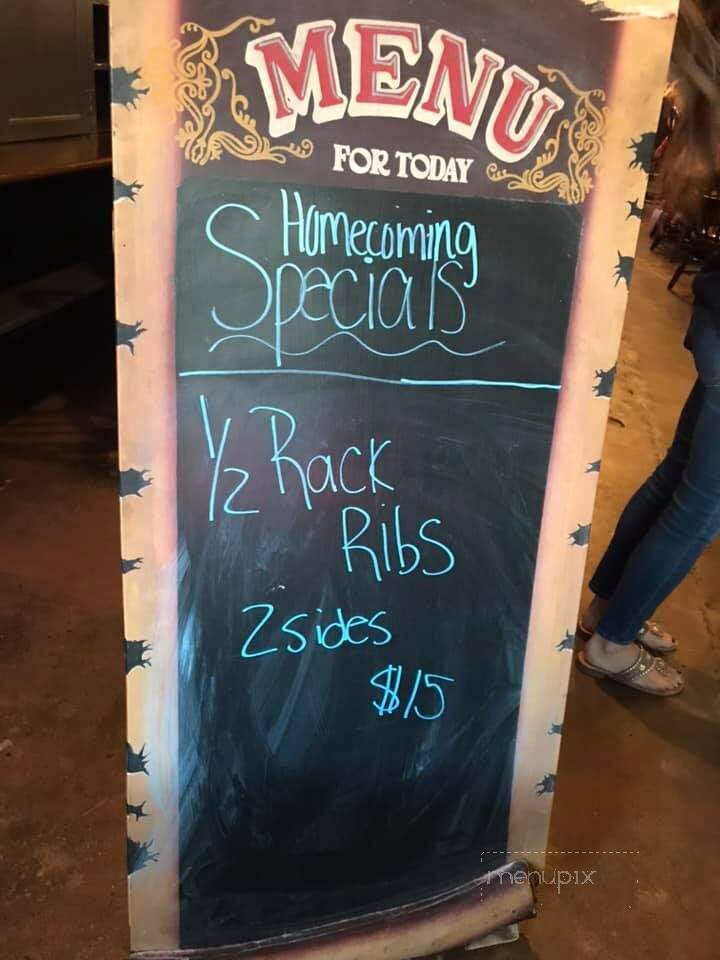 MENU
FOR TODAY
Homecoming
Specials
1/2 Rack
Ribs
2 sides
$15
menupix